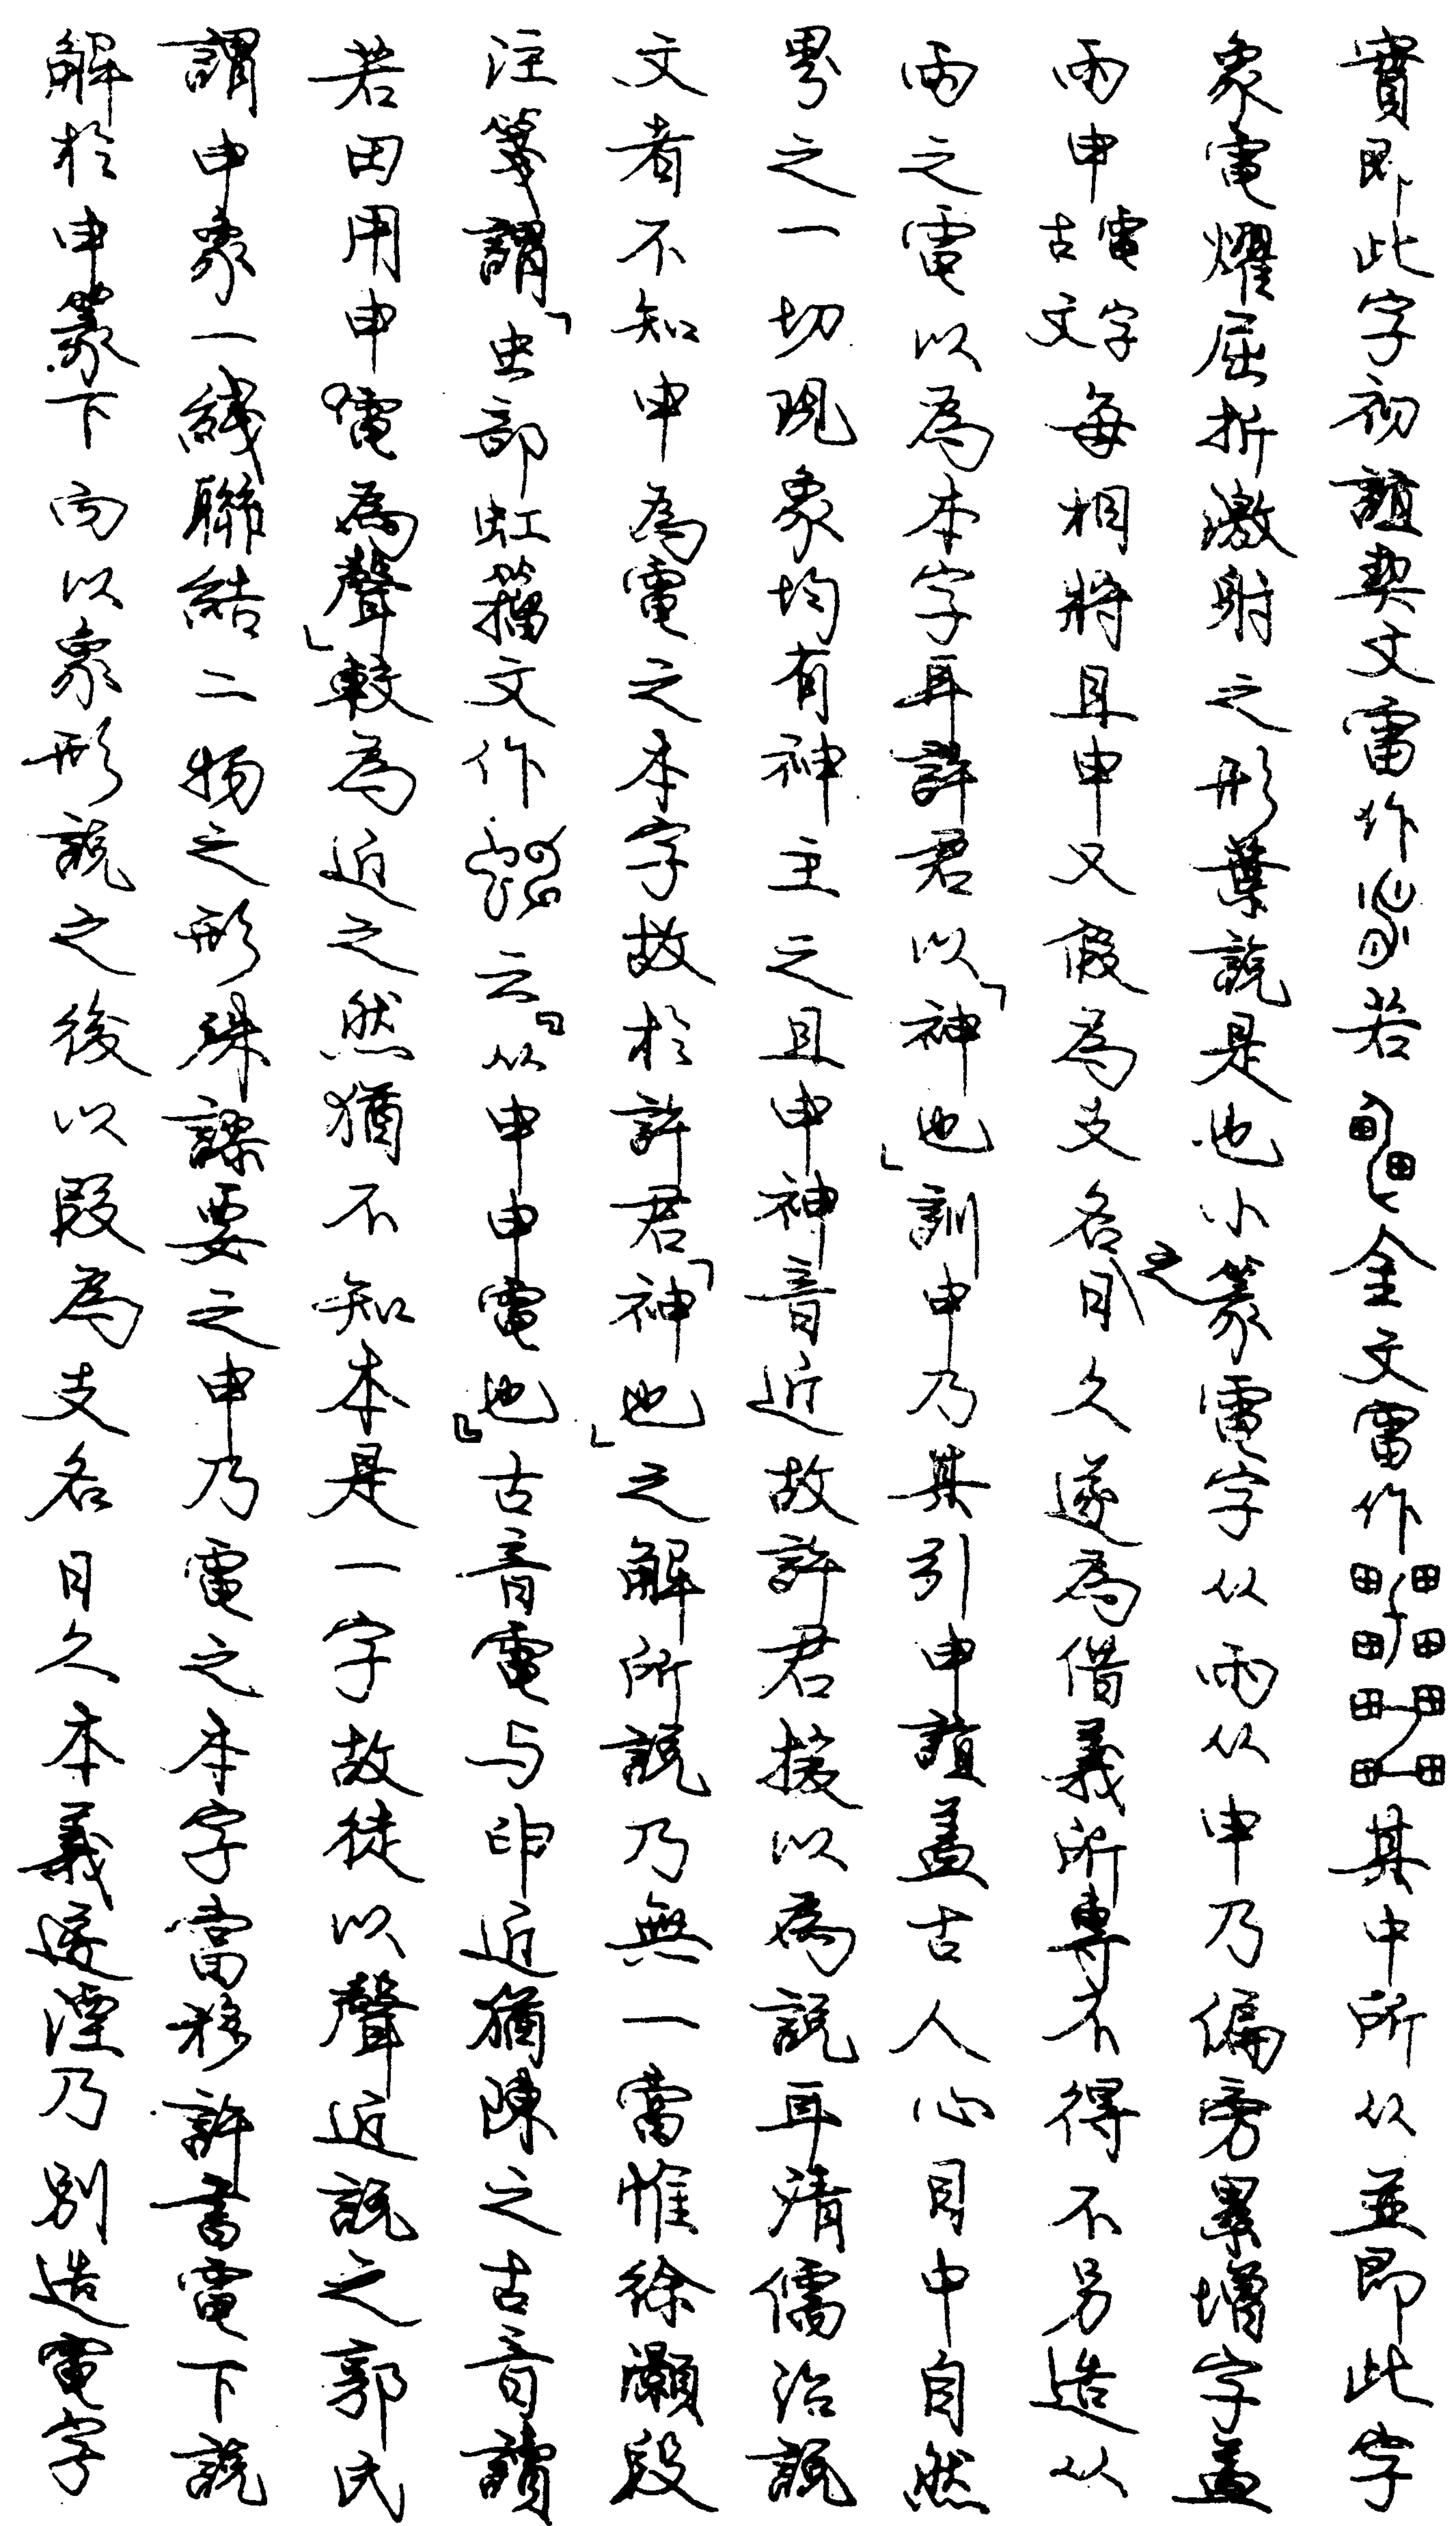 實即此字初誼契文雷作若金文雷作其中所从並即此字
象電燿屈折激射之形葉說是也小篆電字从雨从申乃偏旁累增字蓋
雨申電字古文每相將且申又假為支名之日久遂為借義所專不得不另造从
雨之電以為本字耳許君以「神也」訓申乃其引申誼蓋古人心目中自然
界之一切現象均有神主之且申神音近故許君援以為說耳清儒治說
文者不知申為電之本字故於許君「神也」之解所說乃無一當惟徐灝段
注箋謂「虫部虹籀文作云『从申申電也』古音電与申近猶陳之古音讀
若田用申電為聲」較為近之然猶不知本是一字故徒以聲近說之郭氏
謂申象一綫聯結二物之形殊誤要之申乃電之本字當移許書電下說
解於申篆下而以象形說之後以叚為支名日久本義遂湮乃別造電字